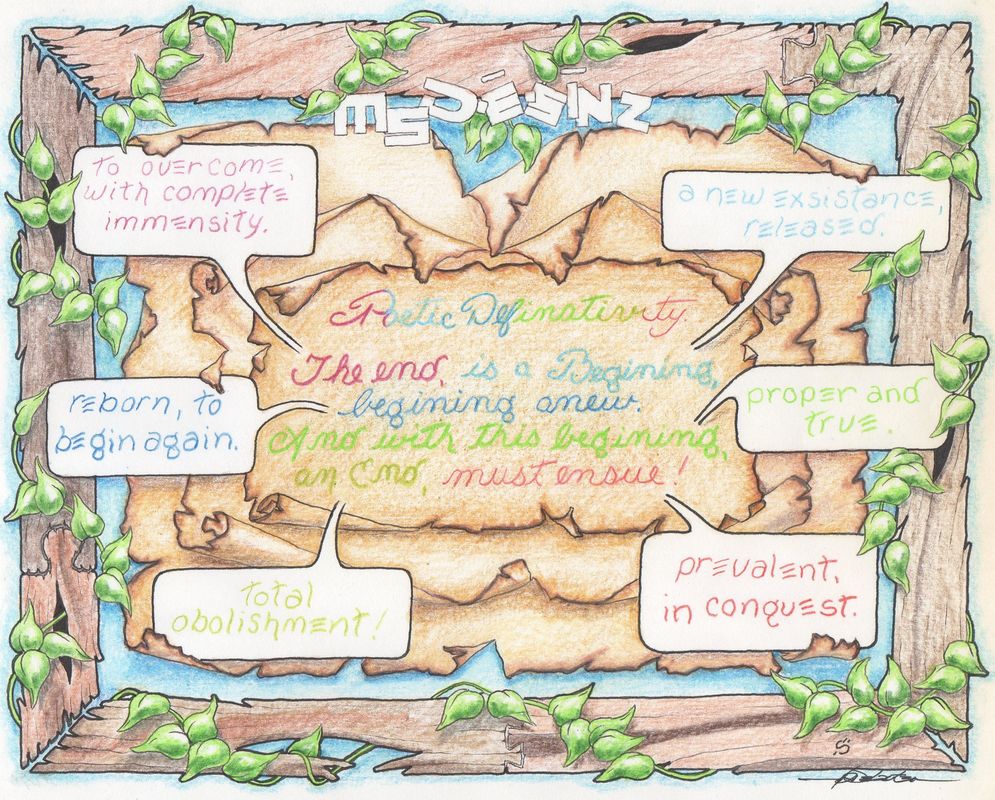 MSDÉSÍNZ
to overcome,
with complete
immensity.
a new exsistance,
released.
Poetic Definativity.
The end, is a Begining,
begining anew.
And with this begining,
an End, must ensue!
reborn, to
begin again.
proper and
true.
total
abolishment!
prevalent,
in conquest.